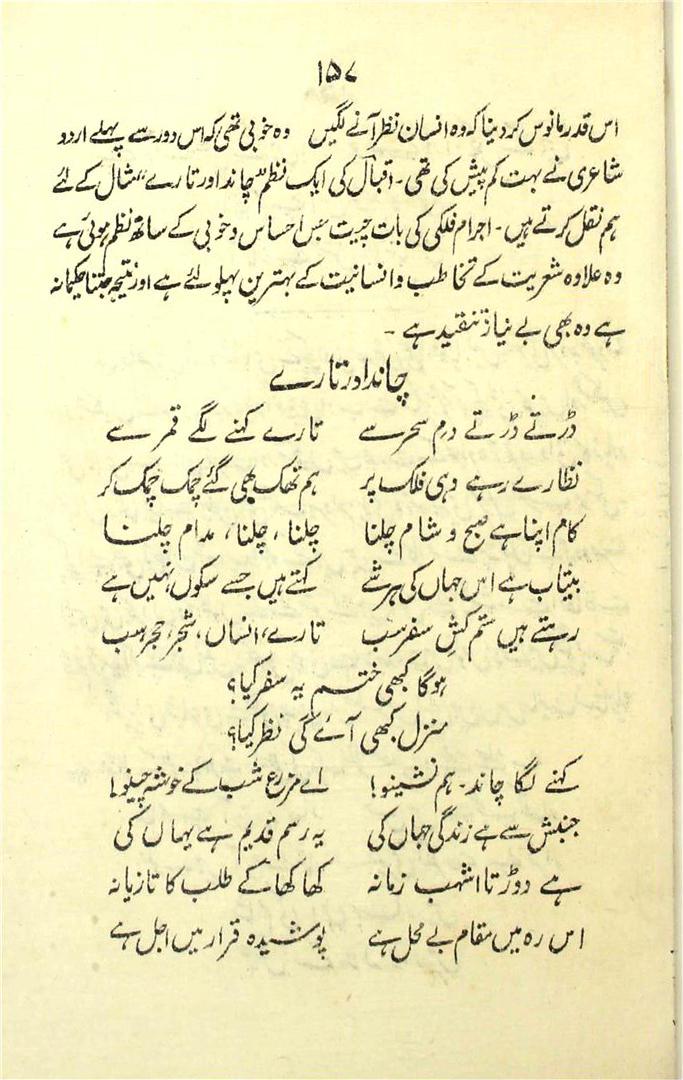 ۱۵۷
اس قدر مانوس کر دینا کہ وہ انسان نظر آنے لگیں وہ خوبی تھی کہ اس دور سے پہلے اردو
شاعری نے بہت کم پیش کی تھی۔ اقبال کی ایک نظم "چاند اور تارے" مثال کے لئے
ہم نقل کرتے ہیں۔ اجرام فلکی کی بات چیت جس احساس و خوبی کے ساتھ نظم ہوئی ہے
وہ علاوہ شعریت کے تخاطب و انسانیت کے بہترین پہلو لئے ہے اور نتیجہ جتنا حکیمانہ
ہے وہ بھی بے نیاز تنقید ہے ۔
چاند اور تارے
ڈرتے ڈرتے دمِ سحر سے تارے کہنے لگے قمر سے
نظارے رہے وہی فلک پر ہم تھک بھی گئے چمک چمک کر
کام اپنا ہے صبح و شام چلنا چلنا، چلنا، مدام چلنا
بیتاب ہے اس جہاں کی ہر شے کہتے ہیں جسے سکوں نہیں ہے
رہتے ہیں ستم کشِ سفر سب تارے، انساں، شجر، حجر سب
ہوگا کبھی ختم یہ سفر کیا؟
منزل کبھی آئے گی نظر کیا؟
کہنے لگا چاند۔ ہم نشینو! اے مزرع شب کے خوشہ چینو!
جنبش سے ہے زندگی جہاں کی یہ رسم قدیم ہے یہاں کی
ہے دوڑتا اشہب زمانہ کھا کھا کے طلب کا تازیانہ
اس رہ میں مقام بے محل ہے پوشیدہ قرار میں اجل ہے